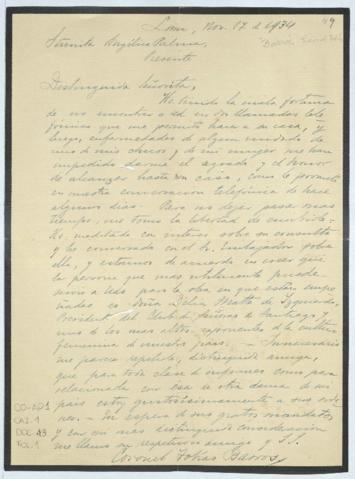 Lima, Nov. 17 de 1934
49
Señorita Angélica Palma,
Presente
Distinguida Señorita,
He tenido la mala fortuna
de no encontrar a Ud en dos llamados tele
fónicos que me permití hacer a su casa, y
luego, enfermedades de alguna de
uno de mis chicos y de mi me han
impedido darme el agrado y el honor
de alcanzar hasta su casa, como le prometí
en nuestra conversación telefónica de hace
algunos días. Pero no dejar pasar más
tiempo, me tomo la libertad de escribirle.
He meditado con interés sobre su consulta
y he conversado con el Sr. Embajador sobre
ella, y estamos de acuerdo en creer que
la persona que más útilmente puede
servir a Uds para la obra en que están empe
ñadas es doña Delia Matte de Izquierdo,
Presidenta del Club de Señoras de Santiago y
uno de los más altos exponentes de la cultura
femenina de nuestro país. — Innecesario
me parece repetirle, distinguida amiga,
que para toda clase de informes como para
relacionarla con esa u otra dama de mi
país estoy gustosísimamente a sus orde
nes. — En espera de sus gratos mandatos
y con mi más distinguida consideración
me llamo su respetuoso amigo y S.S.
Coronel Tobías Barros
CO-AP1
CAJ. 1
DOC. 43
FOL. 1